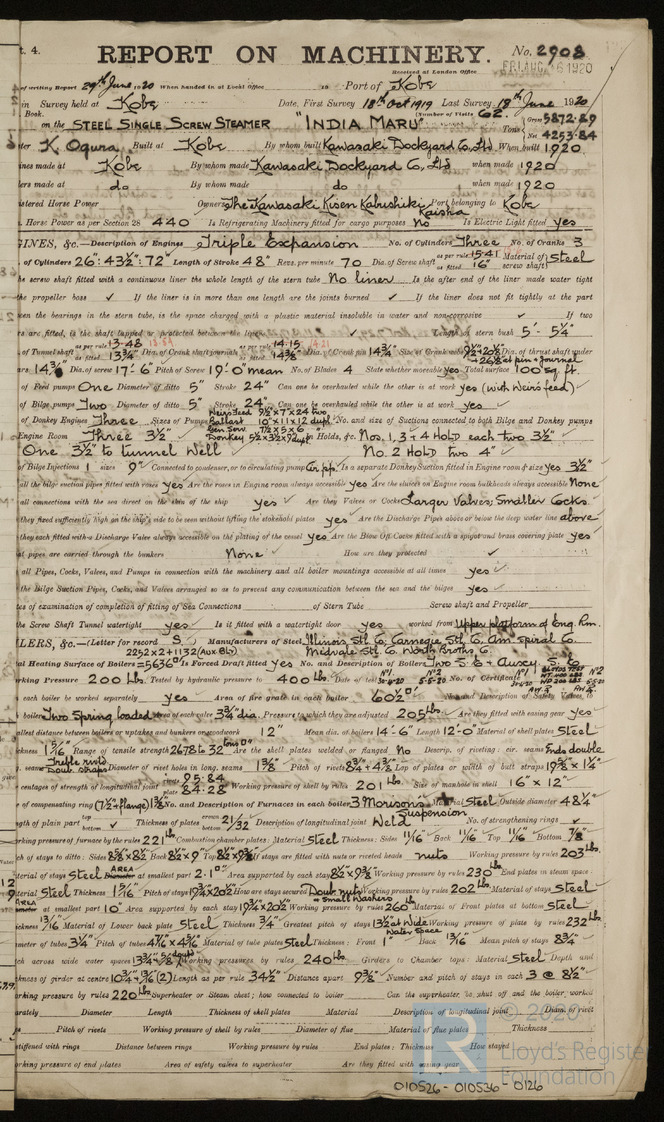 t. 4.
REPORT ON MACHINERY. No. 2908
Received at London Office FRI. AUG. 6 1920
of writing Report 29th June 1920 When handed in at Local Office 19 Port of Kobe
in Survey held at Kobe Date, First Survey 18th Oct 1919 Last Survey 18th June 1920
Book. (Number of Visits 62.
on the STEEL SINGLE SCREW STEAMER "INDIA MARU" Tons Gross 5872.89 Net 4253.84
K. Ogura Built at Kobe By whom built Kawasaki Dockyard Co, Ltd When built 1920
ines made at Kobe By whom made Kawasaki Dockyard Co, Ltd when made 1920
lers made at do By whom made do when made 1920
istered Horse Power Owners The Kawasaki Kisen Kabushiki Kaisha Port belonging to Kobe
. Horse Power as per Section 28 440 Is Refrigerating Machinery fitted for cargo purposes No Is Electric Light fitted yes
GINES, &c.—Description of Engines Triple Expansion No. of Cylinders Three No. of Cranks 3
. of Cylinders 26": 43½": 72" Length of Stroke 48" Revs. per minute 70 Dia. of Screw shaft as per rule 15.41 as fitted 16" Material of screw shaft Steel
he screw shaft fitted with a continuous liner the whole length of the stern tube No liner Is the after end of the liner made water tight
the propeller boss ✓ If the liner is in more than one length are the joints burned ✓ If the liner does not fit tightly at the part
een the bearings in the stern tube, is the space charged with a plastic material insoluble in water and non-corrosive ✓ If two
rs are fitted, is the shaft lapped or protected between the liners ✓ Length of stern bush 5'-5¼"
of Tunnel shaft as per rule 13.48 as fitted 13¾" Dia. of Crank shaft journals as per rule 14.15 as fitted 14⅜" Dia. of Crank pin 14¾" Size of Crank webs Dia. of thrust shaft under
Dia. of screw 17'-6" Pitch of Screw 19'-0" mean No. of Blades 4 State whether moveable yes Total surface 100 sq. ft.
of Feed pumps One Diameter of ditto 5" Stroke 24" Can one be overhauled while the other is at work yes (with Weirs feed)
of Bilge pumps Two Diameter of ditto 5" Stroke 24" Can one be overhauled while the other is at work yes
of Donkey Engines Three Sizes of Pumps Weirs Feed 9½" x 7" x 24" two Ballast 10" x 11" x 12" dupl. Gen Serv. Donkey No. and size of Suctions connected to both Bilge and Donkey pumps
Engine Room Three 3½" In Holds, &c. Nos. 1, 3 + 4 Hold each two 3½"
One 3½" to tunnel well No. 2 Hold two 4"
of Bilge Injections 1 sizes 9" Connected to condenser, or to circulating pump Cir. pp. Is a separate Donkey Suction fitted in Engine room & size yes 3½"
all the bilge suction pipes fitted with roses yes Are the roses in Engine room always accessible yes Are the sluices on Engine room bulkheads always accessible None
all connections with the sea direct on the skin of the ship yes Are they Valves or Cocks Larger Valves, Smaller Cocks.
they fixed sufficiently high on the ship's side to be seen without lifting the stokehold plates yes Are the Discharge Pipes above or below the deep water line above
they each fitted with a Discharge Valve always accessible on the plating of the vessel yes Are the Blow Off Cocks fitted with a spigot and brass covering plate yes
at pipes are carried through the bunkers None How are they protected ✓
all Pipes, Cocks, Valves, and Pumps in connection with the machinery and all boiler mountings accessible at all times yes
the Bilge Suction Pipes, Cocks, and Valves arranged so as to prevent any communication between the sea and the bilges yes
tes of examination of completion of fitting of Sea Connections of Stern Tube Screw shaft and Propeller
the Screw Shaft Tunnel watertight yes Is it fitted with a watertight door yes worked from Upper platform of Eng. Rm.
LERS, &c.—(Letter for record S) Manufacturers of Steel Illinois Stl Co, Carnegie Stl Co, Am. Spiral Co. Midvale Stl Co. Worth Broths Co.
2252 x 2 + 1132 (Aux Blr)
al Heating Surface of Boilers = 5636 Is Forced Draft fitted yes No. and Description of Boilers Two S. E. + Auxcy. S. E.
king Pressure 200 lbs. Tested by hydraulic pressure to 400 lbs. Date of test No. of Certificate
each boiler be worked separately yes Area of fire grate in each boiler 60½ No. and Description of Safety Valves to
boiler Two Spring loaded Area of each valve 3¾" dia. Pressure to which they are adjusted 205 lbs. Are they fitted with easing gear yes
allest distance between boilers or uptakes and bunkers or woodwork 12" Mean dia. of boilers 14'-6" Length 12'-0" Material of shell plates Steel
ckness 1 3/16" Range of tensile strength 26.78 to 32 tons Are the shell plates welded or flanged No Descrip. of riveting: cir. seams Ends double
seams Treble rivtd Doub. straps Diameter of rivet holes in long. seams 1⅜" Pitch of rivets Lap of plates or width of butt straps
centages of strength of longitudinal joint rivets 95.84 plate 84.28 Working pressure of shell by rules 201 lbs. Size of manhole in shell 16" x 12"
of compensating ring (7½" + flange) No. and Description of Furnaces in each boiler 3 Morisons Suspension Material Steel Outside diameter 48¼"
gth of plain part top bottom Thickness of plates crown bottom 21/32 Description of longitudinal joint Weld No. of strengthening rings ✓
rking pressure of furnace by the rules 221 lbs. Combustion chamber plates: Material Steel Thickness: Sides 11/16" Back 11/16" Top 11/16" Bottom ⅞"
ch of stays to ditto: Sides Back 8½ x 9" Top If stays are fitted with nuts or riveted heads nuts Working pressure by rules 203 lbs.
terial of stays Steel Area at smallest part 2.1 Area supported by each stay Working pressure by rules 230 lbs End plates in steam space
terial Steel Thickness Pitch of stays 19¼ x 20½ How are stays secured Doub. nuts + small washers Working pressure by rules 202 lbs. Material of stays Steel
at smallest part 10" Area supported by each stay 19¼ x 20½ Working pressure by rules 260 lbs Material of Front plates at bottom Steel
ickness 13/16" Material of Lower back plate Steel Thickness ¾" Greatest pitch of stays 13½" at Wide Water Space Working pressure of plate by rules 232 lbs
meter of tubes 3¼" Pitch of tubes Material of tube plates Steel Thickness: Front 1" Back 13/16" Mean pitch of stays 8¾"
ch across wide water spaces Working pressures by rules 240 lbs. Girders to Chamber tops: Material Steel Depth and
ckness of girder at centre 10¾ x 13/16 (2) Length as per rule 34½" Distance apart 9⅜" Number and pitch of stays in each 3 @ 8½"
rking pressure by rules 220 lbs Superheater or Steam chest; how connected to boiler Can the superheater be shut off and the boiler worked
arately Diameter Length Thickness of shell plates Material Description of longitudinal joint Diam. of rivet
s Pitch of rivets Working pressure of shell by rules Diameter of flue Material of flue plates Thickness
stiffened with rings Distance between rings Working pressure by rules End plates: Thickness How stayed
orking pressure of end plates Area of safety valves to superheater Are they fitted with easing gear
© 2020
Lloyd's Register
Foundation
010526 - 010536 - 0126